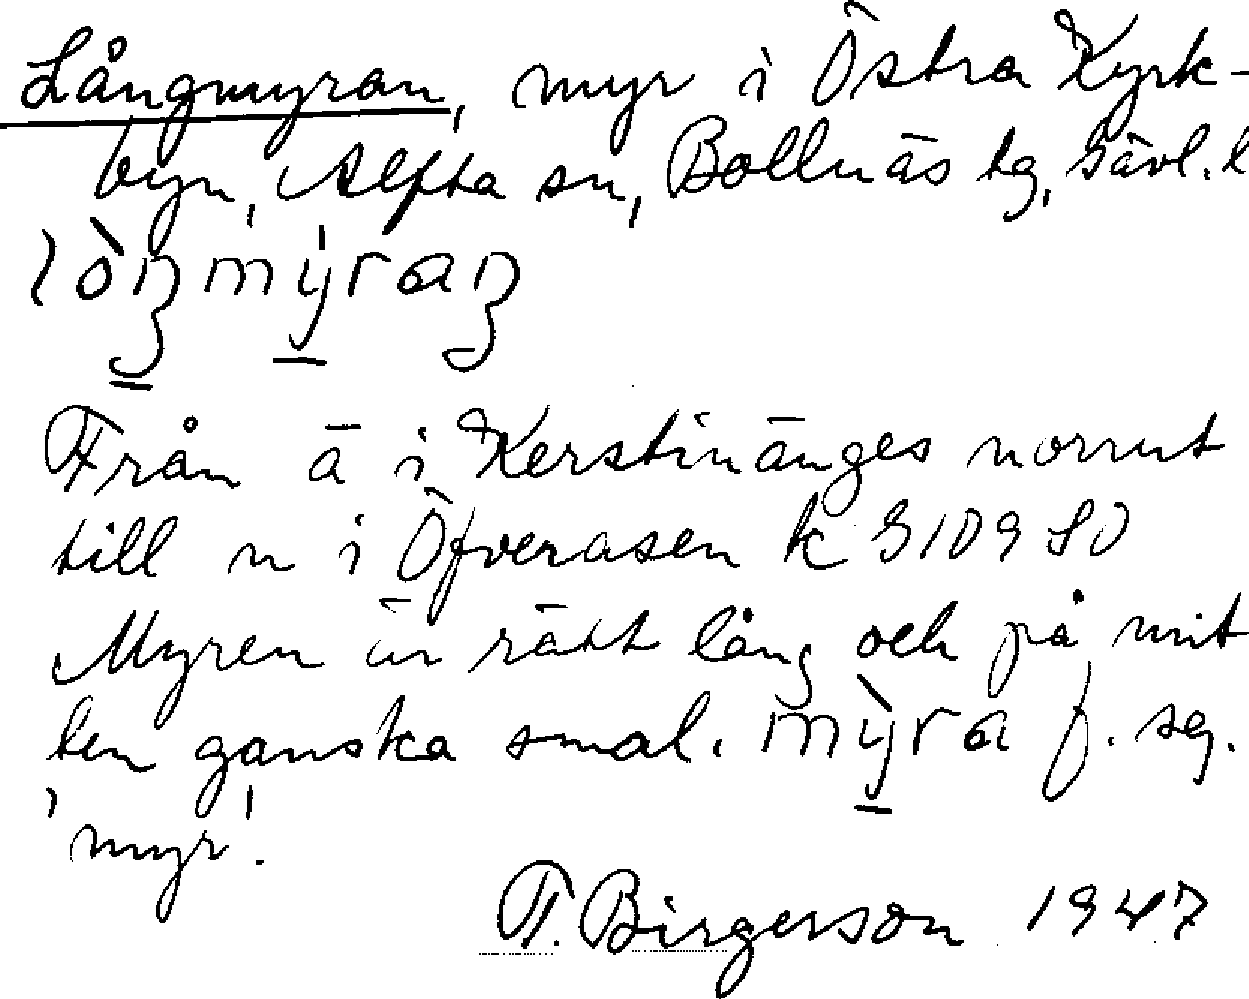 Långmyran, myr i Östra Kyrk-
byn, Alfta sn, Bollnäs tg, Gävl. l
Från ä i Kerstinänges norrut
till n i Öfverasen k 9109 SO
Myren är rätt lång och på mit
ten ganska smal. mỳra f. sg.
'myr'.
T. Birgerson 1947